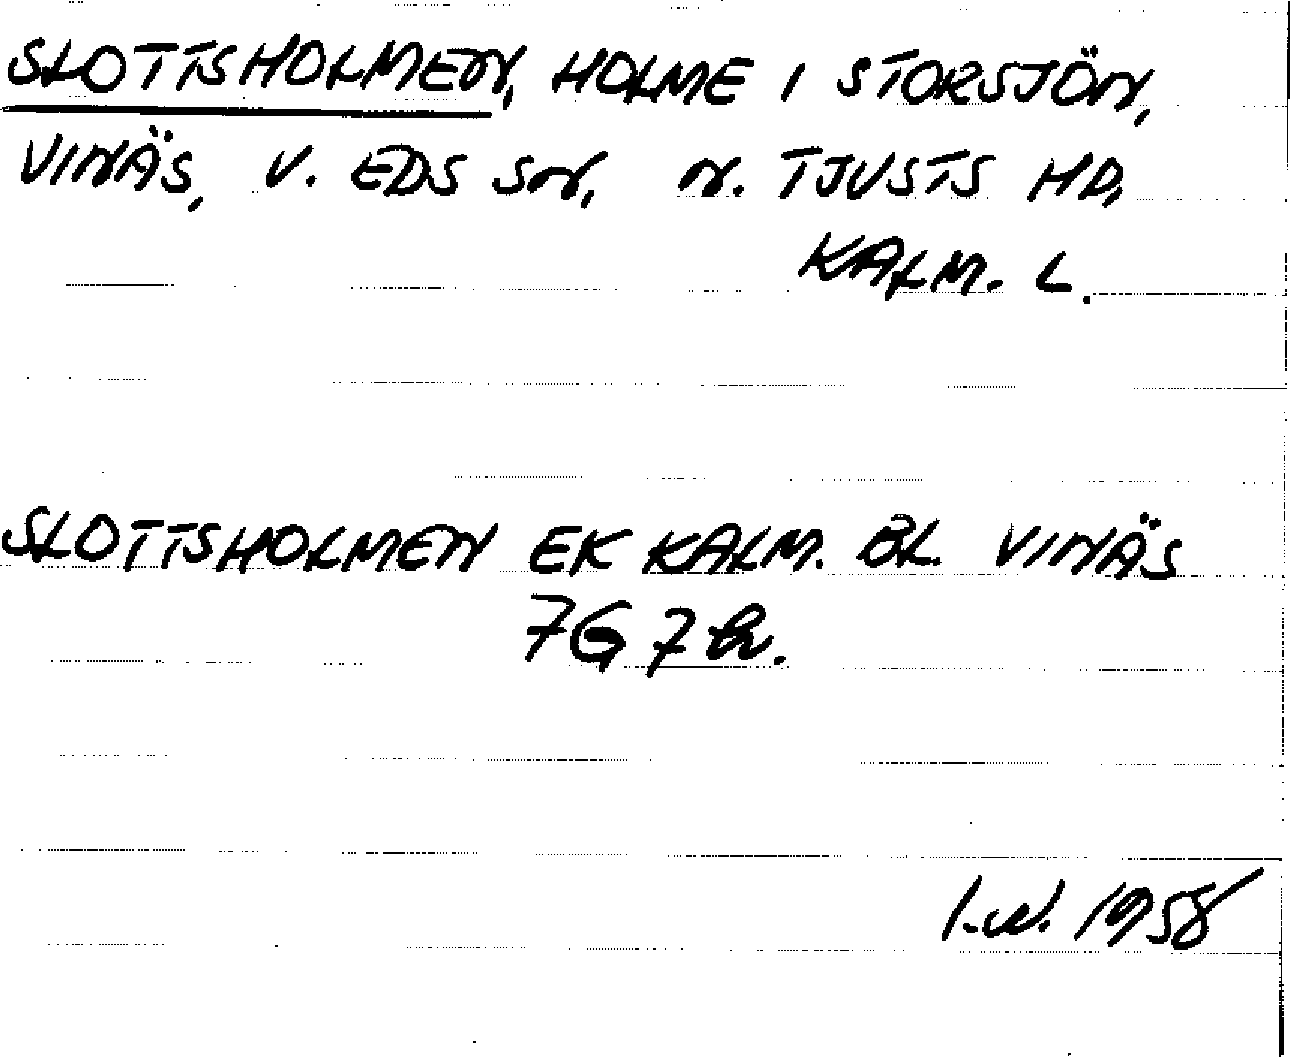 SLOTTSHOLMEN, HOLME I STORSJÖN,
VINÄS, V. EDS SN, N. TJUSTS HD,
KALM. L.
SLOTTSHOLMEN EK KALM. BL. VINÄS
7G 7h.
1958